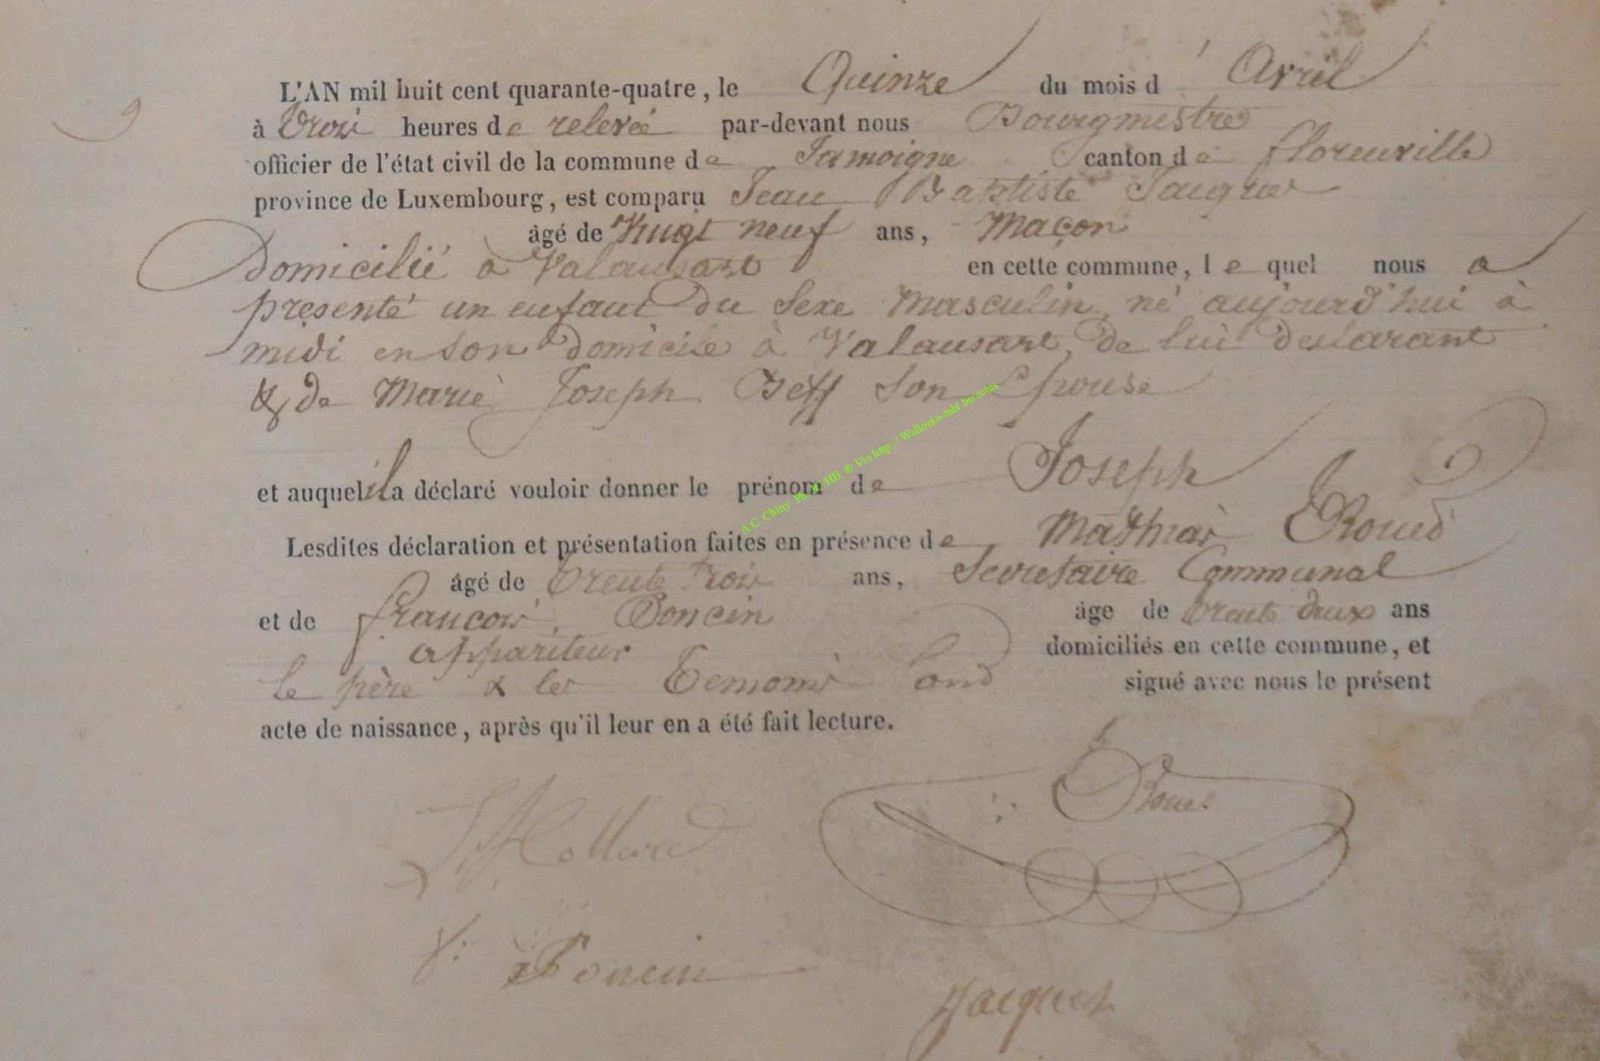 9
L'AN mil huit cent quarante-quatre, le Quinze du mois d'Avril
à trois heures de relevée par-devant nous Bourgmestre
officier de l'état civil de la commune de Jamoigne canton de florenville
province de Luxembourg, est comparu Jean Baptiste Jacques
âgé de Vingt neuf ans, Maçon
Domicilié à Valansart en cette commune, lequel nous a
présenté un enfant du Sexe Masculin, né aujourd'hui à
midi en son domicile à Valansart, de lui déclarant
& de Marie Joseph son Epouse
et auquel il a déclaré vouloir donner le prénom de Joseph
Lesdites déclaration et présentation faites en présence de Mathias
âgé de trente trois ans, Secrétaire Communal
et de françois Poncin âge de trente deux ans
appariteur domiciliés en cette commune, et
Le père & les Temoins ond signé avec nous le présent
acte de naissance, après qu'il leur en a été fait lecture.
Poncin
Jacques
A.C. Chiny Photo HB ® Via http:// Wallonia-asbl.be/actes